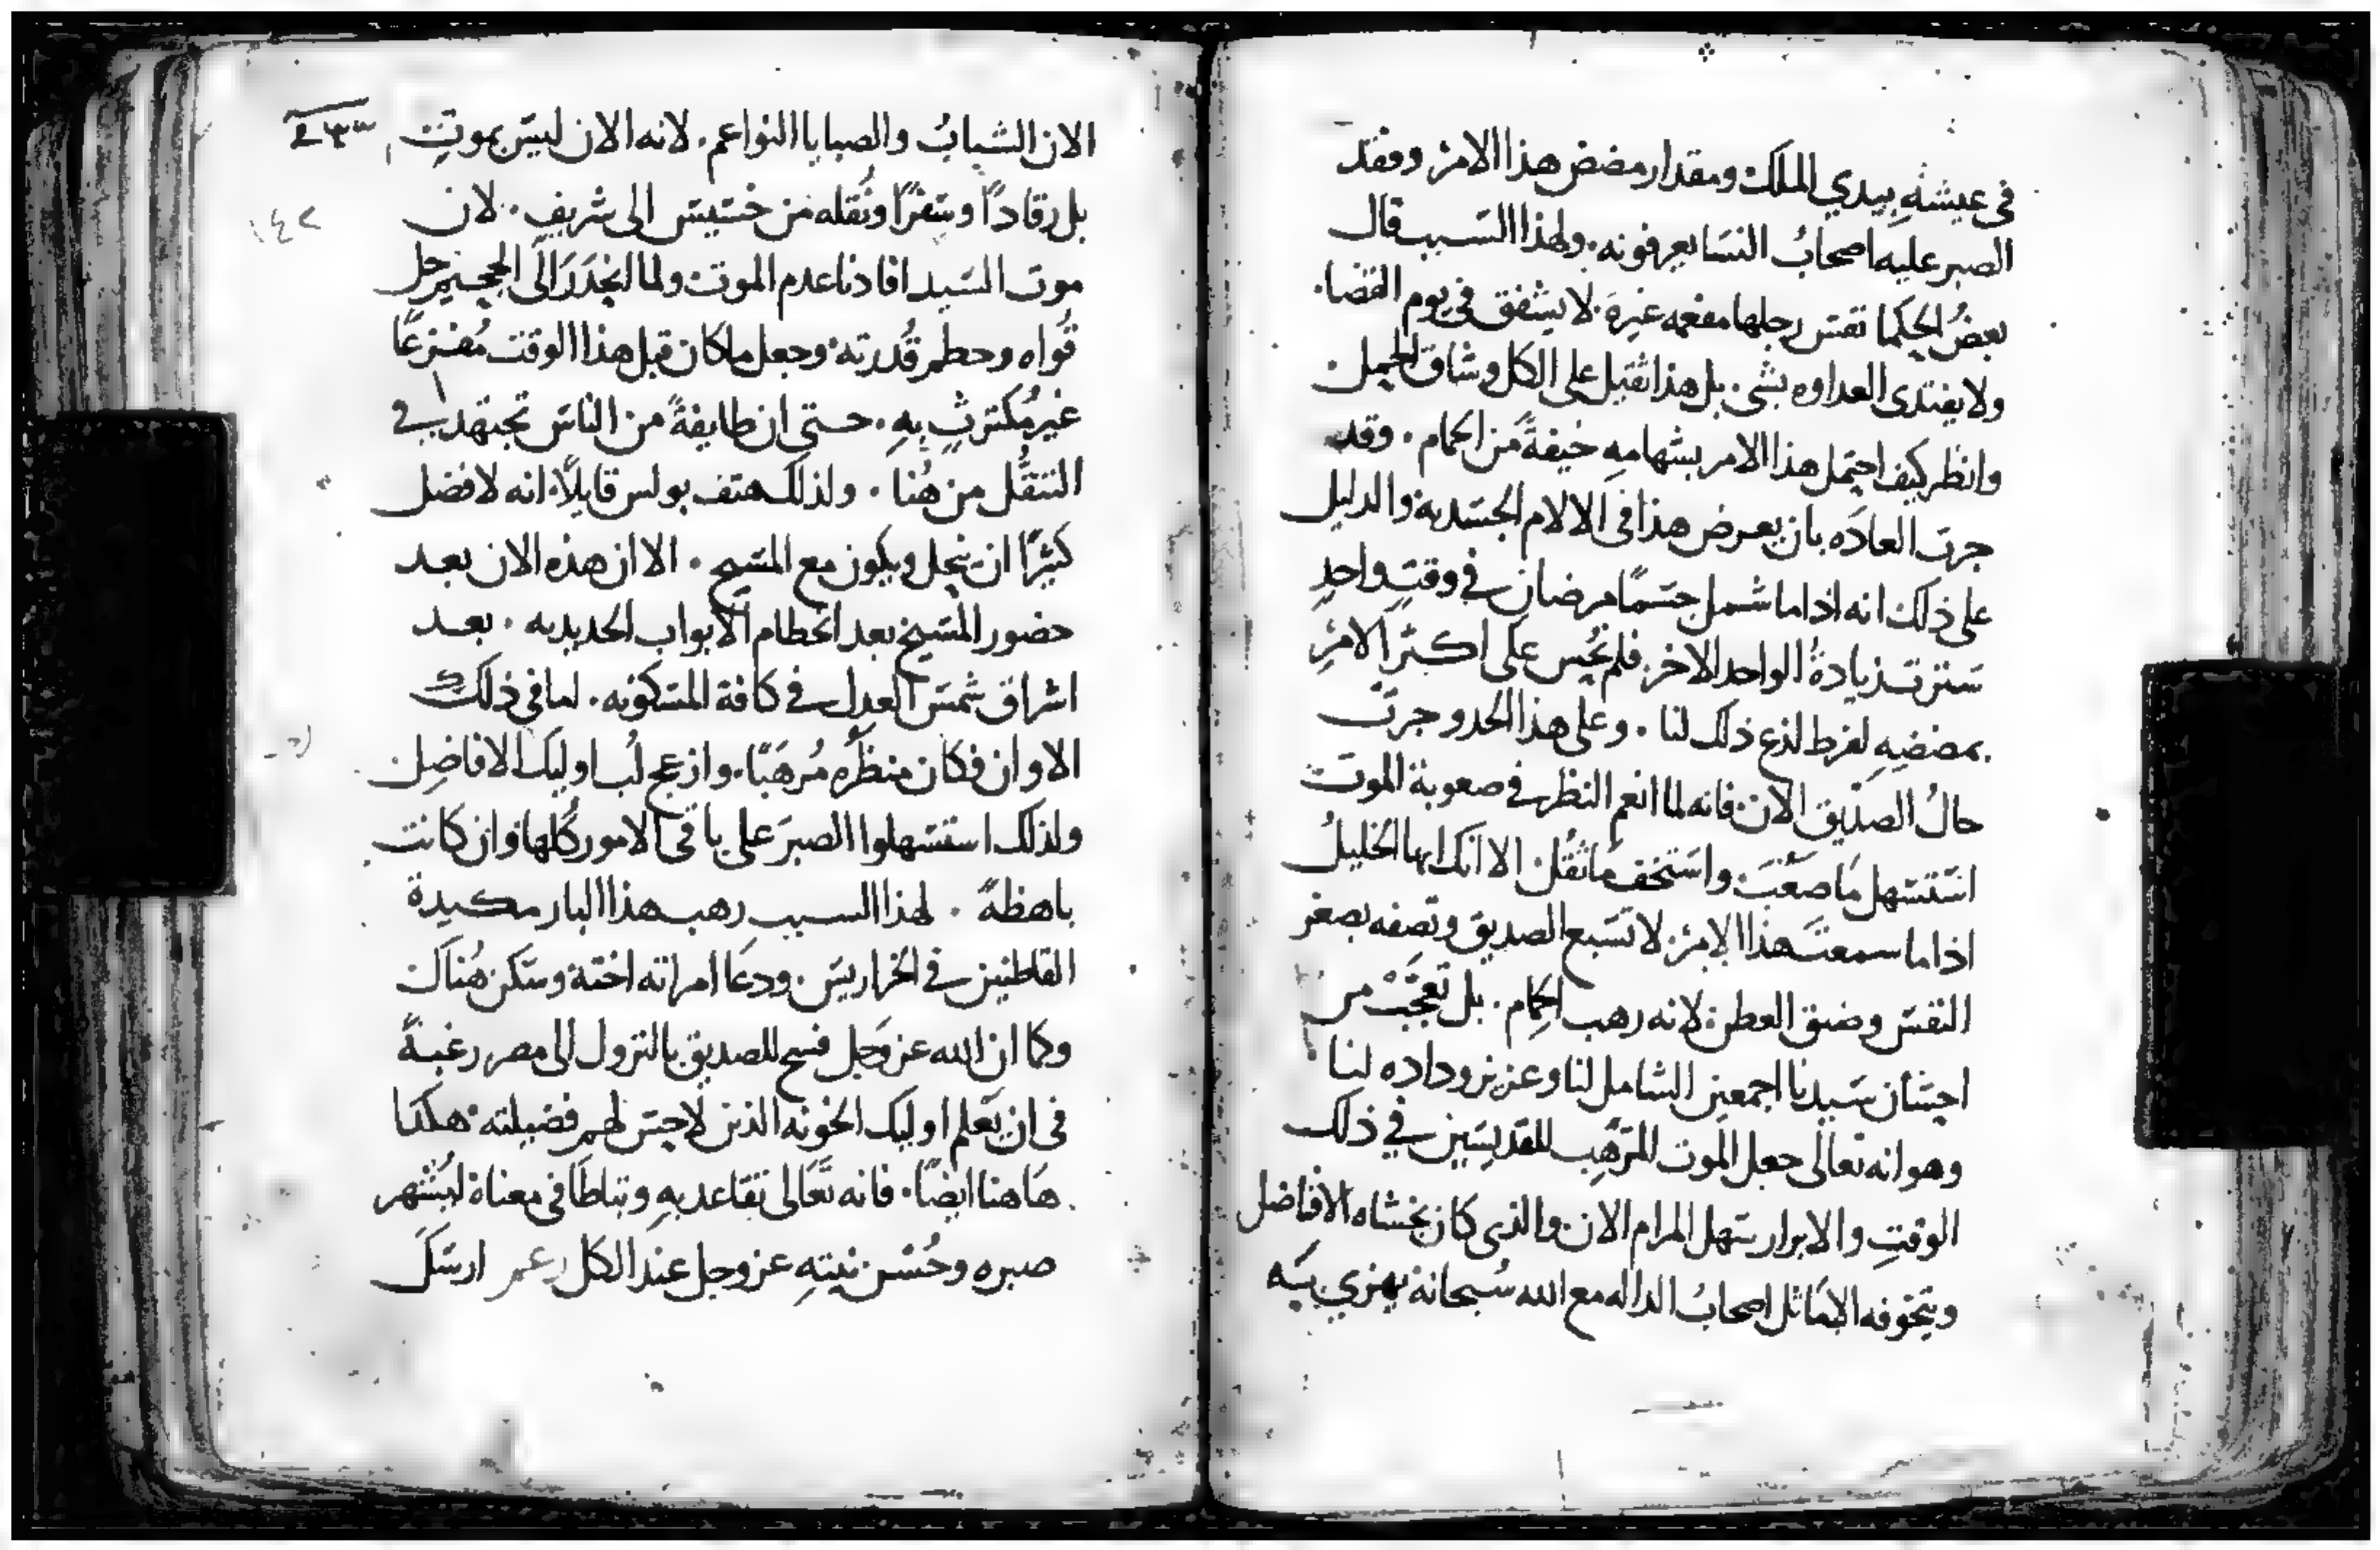 في عيشتهِ بيدي الملك ومقدار مضض هذا الامر وفقد
الصبر عليه اصحابُ النسا يعرفونه. ولهذا السبب قال
بعضُ الحكما نفس رجلها مفعمه غيرة. لا يشفق في يوم القضا.
ولا يفتدى العداوه بشي. بل هذا ثقيل على الكل وشاق الجميل
وانظر كيف احتمل هذا الامر بشهامهِ خيفةً من الحمام. وقد
جرت العاده بان يعرض هذا في الالام الجسدية والدليل
على ذلك انه اذا ما شمل جسمًا مرضان في وقتٍ واحدٍ
سترت زيادةُ الواحد الاخر فلم نحس على اكثر الامرِ
بمضضهِ لفرط لذع ذلك لنا. وعلى هذا الحدو جرت
حالُ الصديق الان فانه لما انعم النظر في صعوبة الموت
استسهل ما صعبَ واستخف ما ثقل الا انك ايها الخليلُ
اذا ما سمعت هذا الامر لا تسبع الصديق وتصفه بصغر
النفس وضيق العطن لانه رهب الحمام. بل تعجّب من
احسان سيدنا اجمعين الشامل لنا وعزيز وداده لنا
وهو انه تعالى جعل الموت المرهِب للقديسين في ذلك
الوقتِ والابرار سهل المرام الان والذى كان يخشاه الافاضل
ويتخوفه الاماثل اصحابُ الداله مع الله سُبحانهُ يهزي بـه
الان الشبابُ والصبايا النواعم. لانه الان ليس بموتٍ
بل رقادًا وسفرًا ونُقله من خسيس الى شريف. لان
موت السيد افادنا عدم الموت ولما انحدرَ الى الجحيم حل
قُواه وحطم قُدرته وجعل ما كان قبل هذا الوقت مُفزعًا
غير مُكترثٍ بهِ. حتى ان طايفةً من الناس تجتهد في
التنقُّل من هُنا. ولذلك هتف بولس قايلًا. انه لافضل
كثيرًا ان ينحل ويكون مع المسيح. الا ان هذه الان بعد
حضور المسيح بعد انحطام الابواب الحديديه. بعد
اشراق شمس العدل في كافة المسكونه. لما في ذلك
الاوان فكان منظرُه مُرهبًا. وازعج لُب اوليك الافاضِل
ولذلك استسهلوا الصبرَ على باقي الامور كُلها وان كانت
باهظةً. لهذا السبب رهب هذا البار مكيدة
القاطنين في الخراريس. ودعَا امراته اخته وسكن هُناك
وكما ان الله عز وَجل فسح للصديق بالنزول الى مصر رغبةً
في ان يَعلم اوليك الخونه الذين لا حِس لهم فضيلته هكذا
هَاهنا ايضًا. فانه تعَالى تقاعد بهِ وتباطا في معناهُ ليُشهر
صبره وحُسْن نيتهِ عز وجل عند الكل ارسَلَ
١٤٢